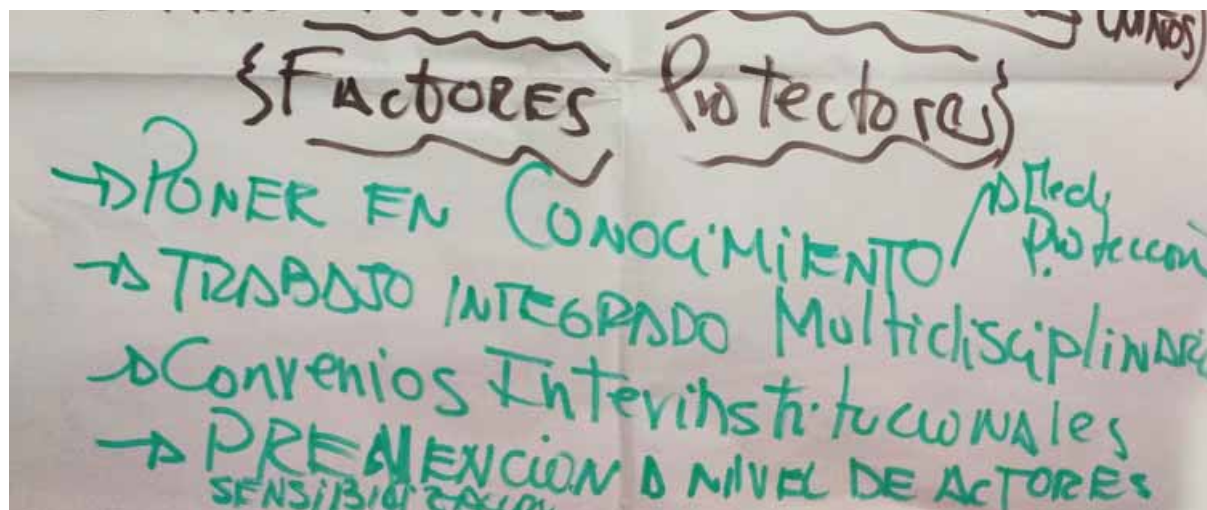 (NIÑOS)
{FACTORES Protectores}
→ PONER EN CONOCIMIENTO / → Med. Protección
→ TRABAJO INTEGRADO Multidisciplinari
→ Convenios Interinstitucionales
→ PREVENCION A NIVEL DE ACTORES
SENSIBILIZACION